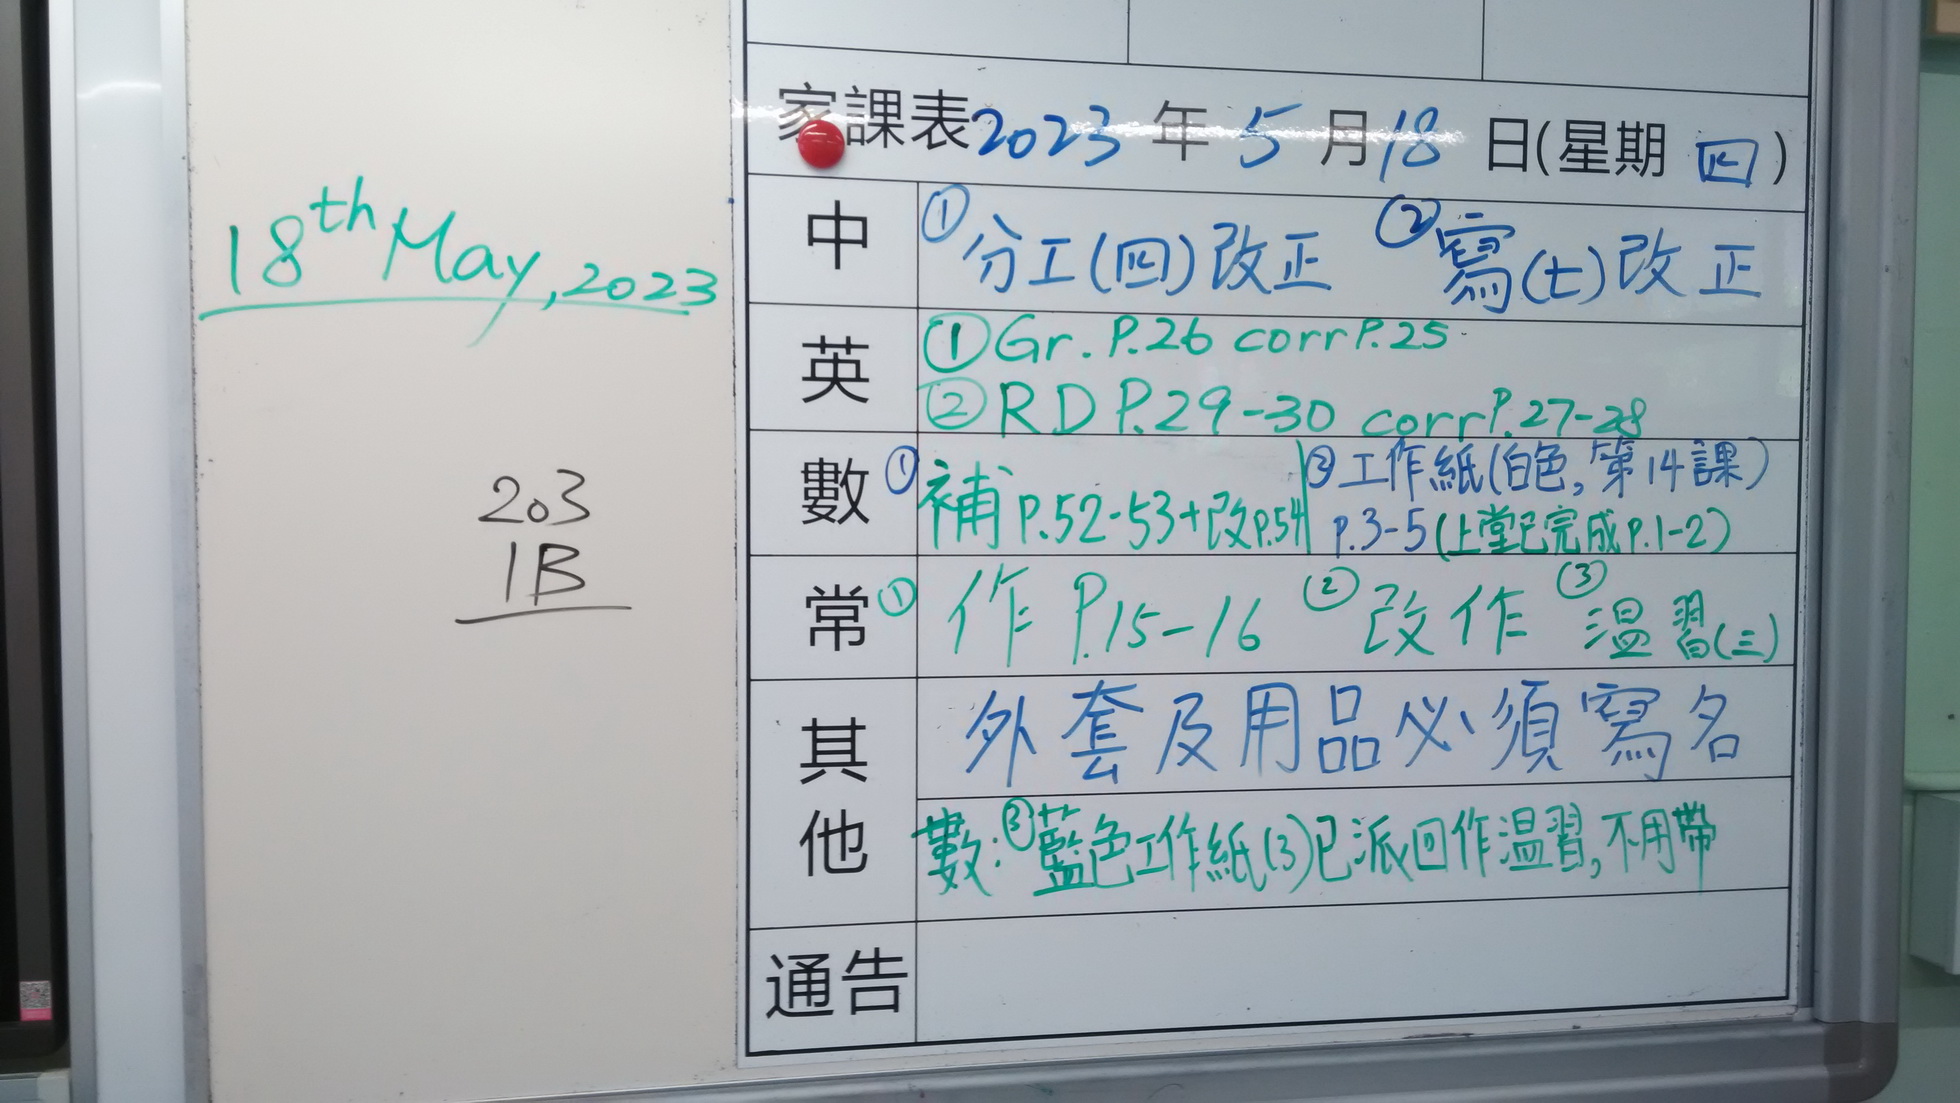 18th May, 2023
203
1B
家課表2023年5月18日(星期四)
中 ①分工(四)改正 ②寫(七)改正
英 ①Gr. P.26 corr P.25
②RD P.29-30 corr P.27-28
數 ①補 P.52-53+改P.54 ②工作紙(白色,第14課)
P.3-5(上堂已完成P.1-2)
常 ①作 P.15-16 ②改作 ③溫習(三)
其他 外套及用品必須寫名
數:③藍色工作紙(3)已派回作溫習,不用帶
通告